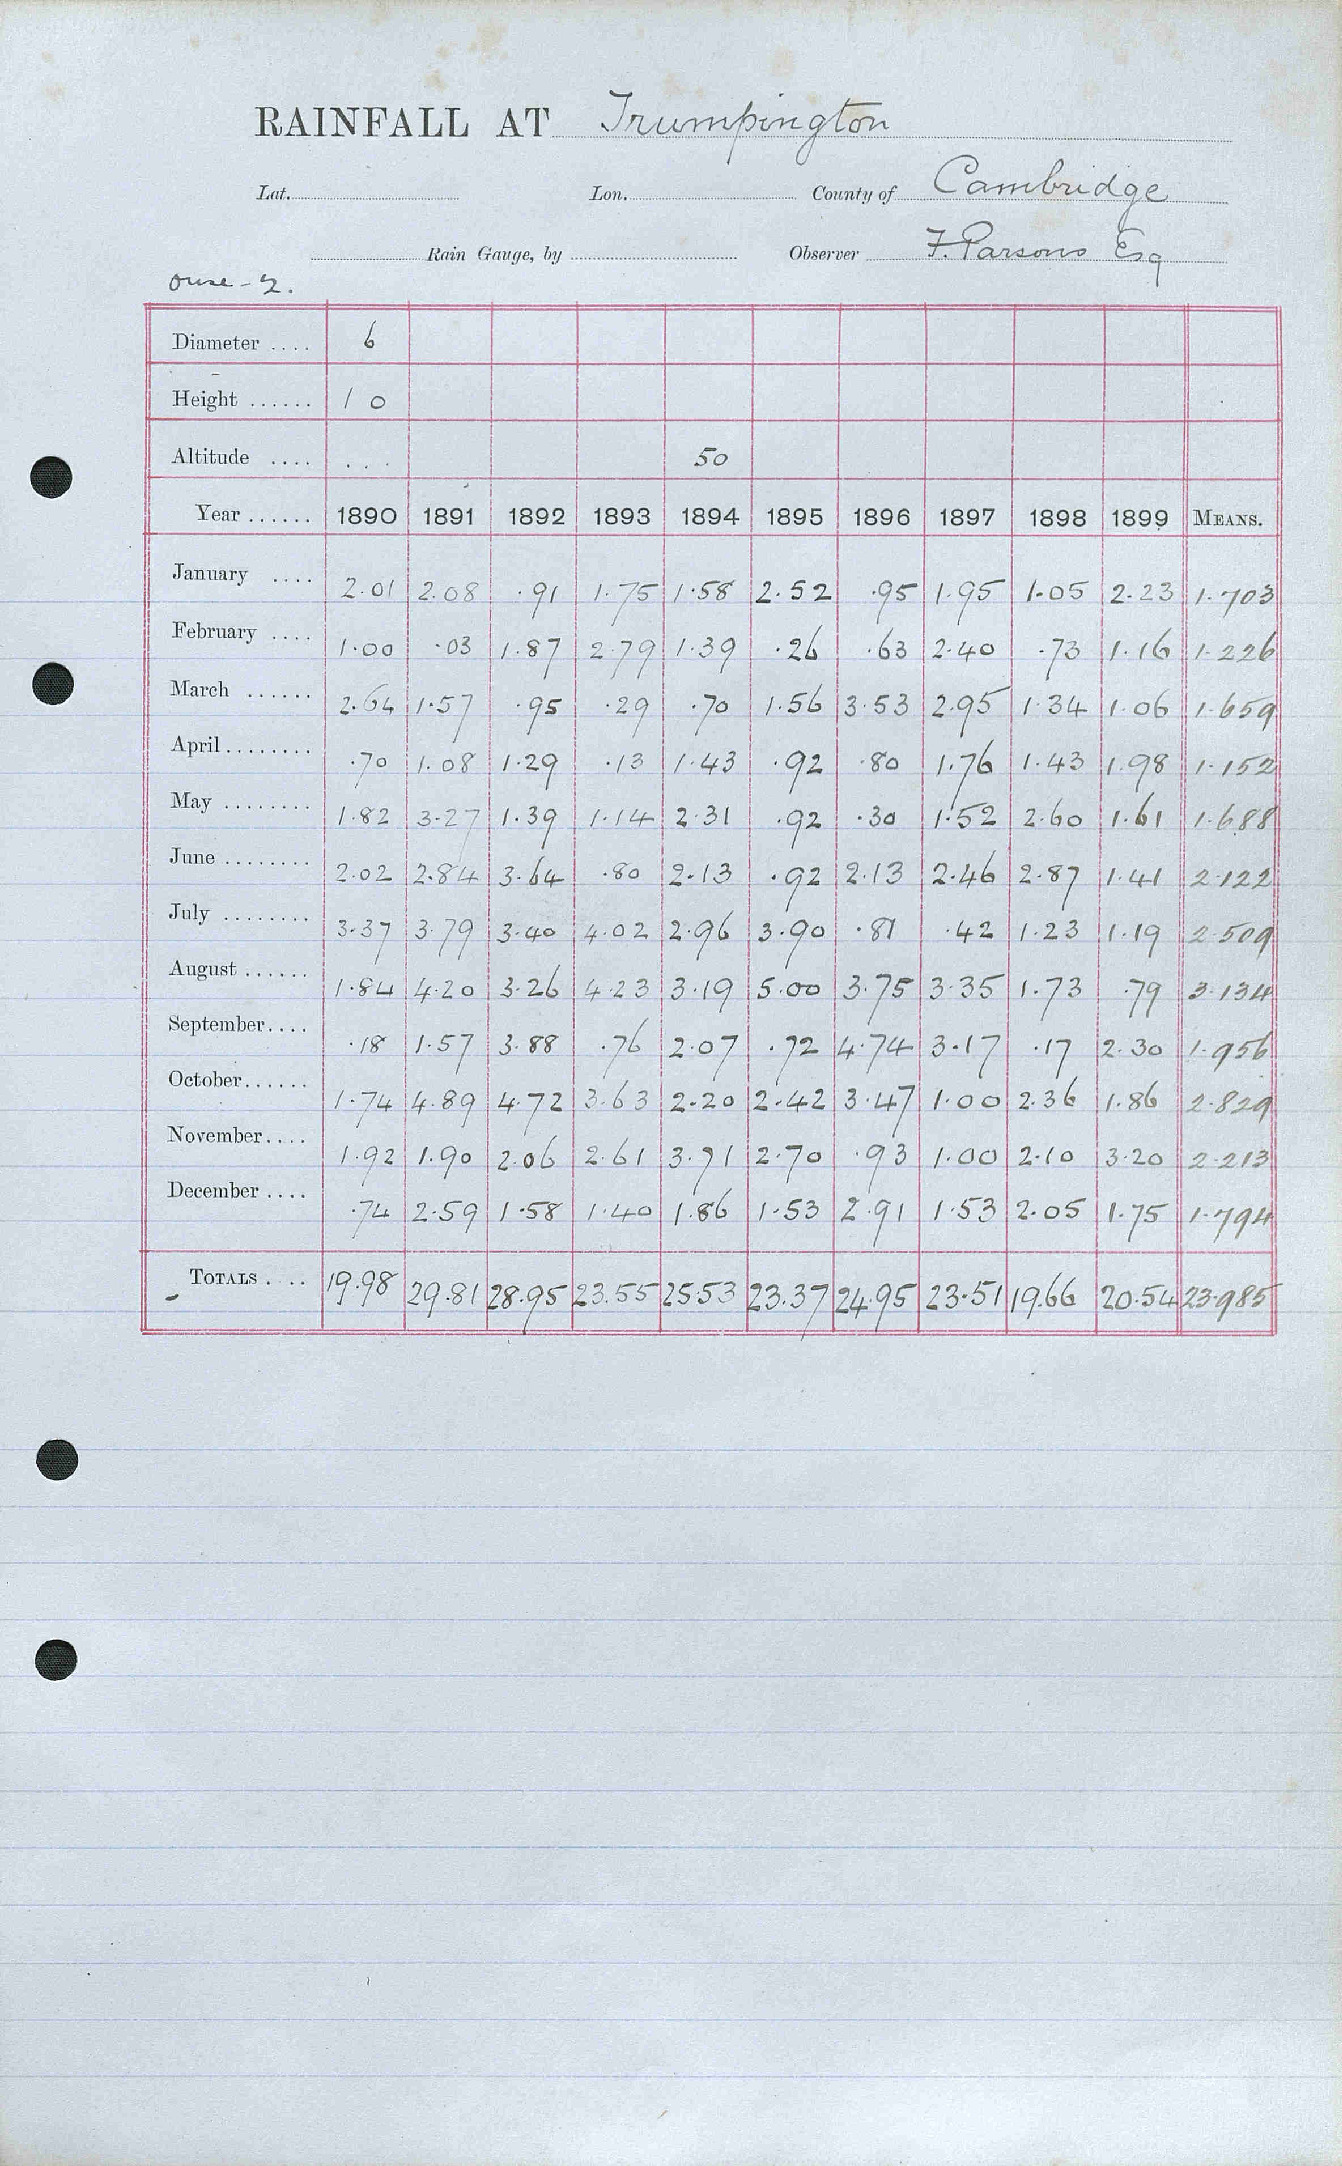 RAINFALL AT Trumpington
Lat. Lon. County of Cambridge
Rain Gauge, by Observer F. Parsons Esq
Ouse - 2.
Diameter .... 6
Height ...... 1 0
Altitude .... ... 50
Year ...... 1890 1891 1892 1893 1894 1895 1896 1897 1898 1899 MEANS.
January .... 2.01 2.08 .91 1.75 1.58 2.52 .95 1.95 1.05 2.23 1.703
February .... 1.00 .03 1.87 2.79 1.39 .26 .63 2.40 .73 1.16 1.226
March ...... 2.64 1.57 .95 .29 .70 1.56 3.53 2.95 1.34 1.06 1.659
April ........ .70 1.08 1.29 .13 1.43 .92 .80 1.76 1.43 1.98 1.152
May ........ 1.82 3.27 1.39 1.14 2.31 .92 .30 1.52 2.60 1.61 1.688
June ........ 2.02 2.84 3.64 .80 2.13 .92 2.13 2.46 2.87 1.41 2.122
July ........ 3.37 3.79 3.40 4.02 2.96 3.90 .81 .42 1.23 1.19 2.509
August ...... 1.84 4.20 3.26 4.23 3.19 5.00 3.75 3.35 1.73 .79 3.134
September .... .18 1.57 3.88 .76 2.07 .72 4.74 3.17 .17 2.30 1.956
October ...... 1.74 4.89 4.72 3.63 2.20 2.42 3.47 1.00 2.36 1.86 2.829
November .... 1.92 1.90 2.06 2.61 3.71 2.70 .93 1.00 2.10 3.20 2.213
December .... .74 2.59 1.58 1.40 1.86 1.53 2.91 1.53 2.05 1.75 1.794
TOTALS .... 19.98 29.81 28.95 23.55 25.53 23.37 24.95 23.51 19.66 20.54 23.985